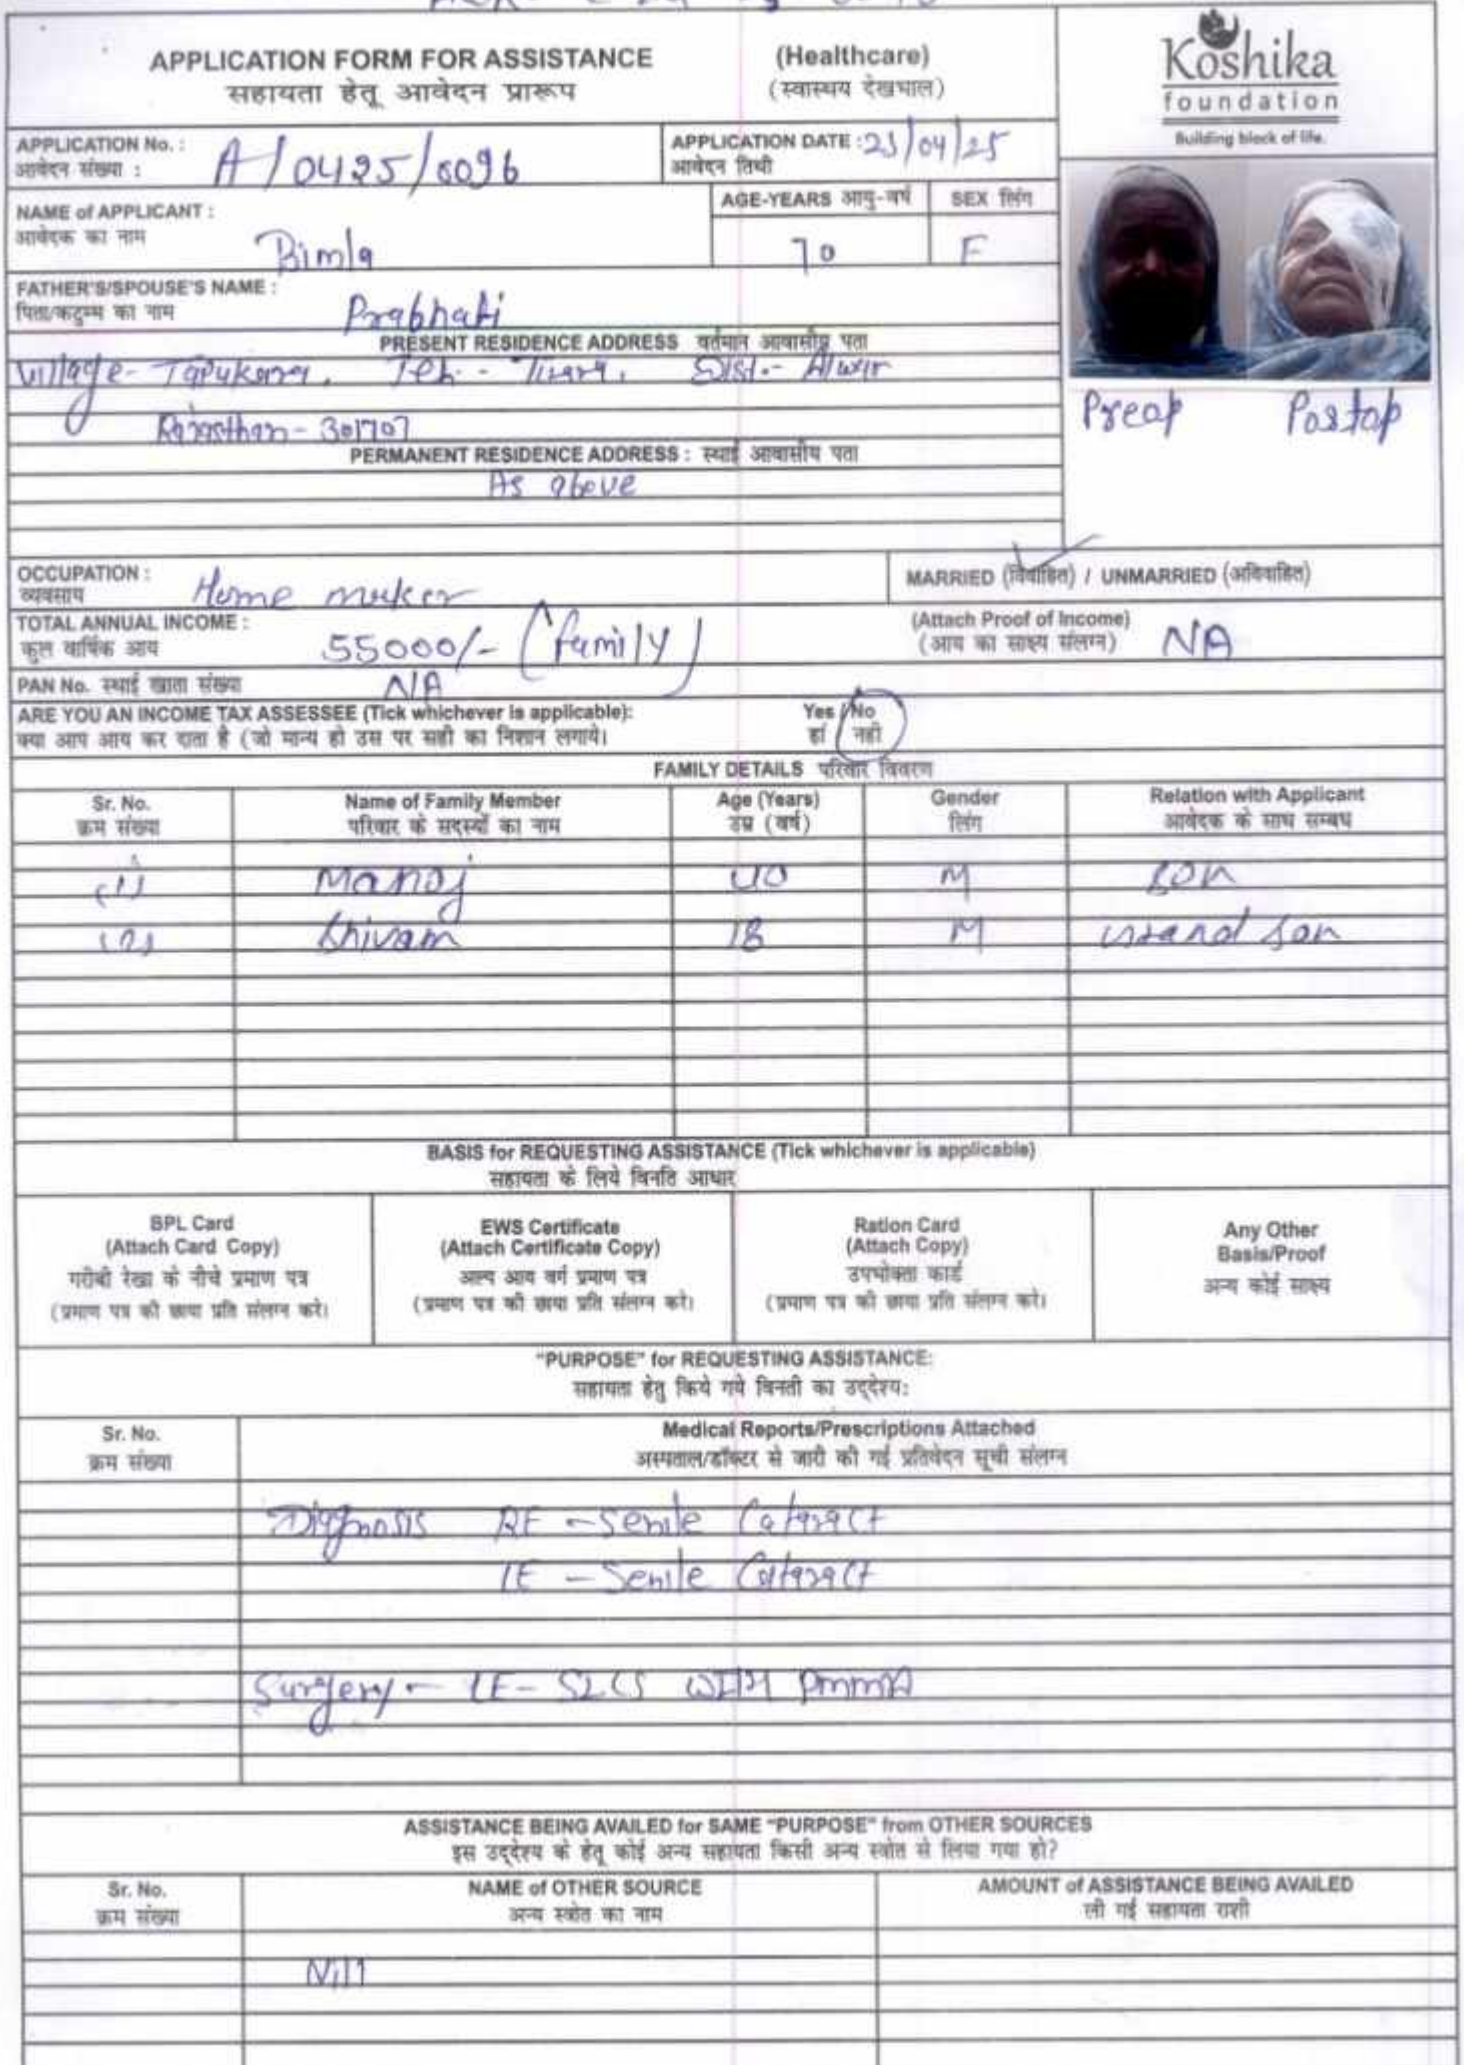 APPLICATION FORM FOR ASSISTANCE (Healthcare)
सहायता हेतू आवेदन प्रारूप (स्वास्थय देखभाल)
Koshika
foundation
Building block of life.
APPLICATION No. : A/0425/0096
आवेदन संख्या :
APPLICATION DATE : 23/04/25
आवेदन तिथी
NAME of APPLICANT : Bimla
आवेदक का नाम
AGE-YEARS आयु-वर्ष 70
SEX लिंग F
FATHER'S/SPOUSE'S NAME : Prabhati
पिता/कटुम्ब का नाम
PRESENT RESIDENCE ADDRESS वर्तमान आवासीय पता
Village- Tapukara, Teh.- Tijara, Dist.- Alwar
Rajasthan- 301707
Preop Postop
PERMANENT RESIDENCE ADDRESS : स्थाई आवासीय पता
As above
OCCUPATION : Home maker
व्यवसाय
MARRIED (विवाहित) / UNMARRIED (अविवाहित)
TOTAL ANNUAL INCOME : 55000/- (family)
कुल वार्षिक आय
(Attach Proof of Income) NA
(आय का साक्ष्य संलग्न)
PAN No. स्थाई खाता संख्या NA
ARE YOU AN INCOME TAX ASSESSEE (Tick whichever is applicable): Yes / No
क्या आप आय कर दाता है (जो मान्य हो उस पर सही का निशान लगाये। हां नही
FAMILY DETAILS परिवार विवरण
Sr. No. Name of Family Member Age (Years) Gender Relation with Applicant
क्रम संख्या परिवार के सदस्यों का नाम उम्र (वर्ष) लिंग आवेदक के साथ सम्बध
(1) Manoj 40 M son
(2) Shivam 18 M grand son
BASIS for REQUESTING ASSISTANCE (Tick whichever is applicable)
सहायता के लिये विनति आधार
BPL Card
(Attach Card Copy)
गरीबी रेखा के नीचे प्रमाण पत्र
(प्रमाण पत्र की छाया प्रति संलग्न करे।
EWS Certificate
(Attach Certificate Copy)
अल्प आय वर्ग प्रमाण पत्र
(प्रमाण पत्र की छाया प्रति संलग्न करे।
Ration Card
(Attach Copy)
उपभोक्ता कार्ड
(प्रमाण पत्र की छाया प्रति संलग्न करे।
Any Other
Basis/Proof
अन्य कोई साक्ष्य
"PURPOSE" for REQUESTING ASSISTANCE:
सहायता हेतु किये गये विनती का उद्देश्य:
Sr. No. Medical Reports/Prescriptions Attached
क्रम संख्या अस्पताल/डॉक्टर से जारी की गई प्रतिवेदन सूची संलग्न
Diagnosis RE - Senile Cataract
LE - Senile Cataract
Surgery - LE - SICS WITH PMMA
ASSISTANCE BEING AVAILED for SAME "PURPOSE" from OTHER SOURCES
इस उद्देश्य के हेतू कोई अन्य सहायता किसी अन्य स्त्रोत से लिया गया हो?
Sr. No. NAME of OTHER SOURCE AMOUNT of ASSISTANCE BEING AVAILED
क्रम संख्या अन्य स्त्रोत का नाम ली गई सहायता राशी
Nill